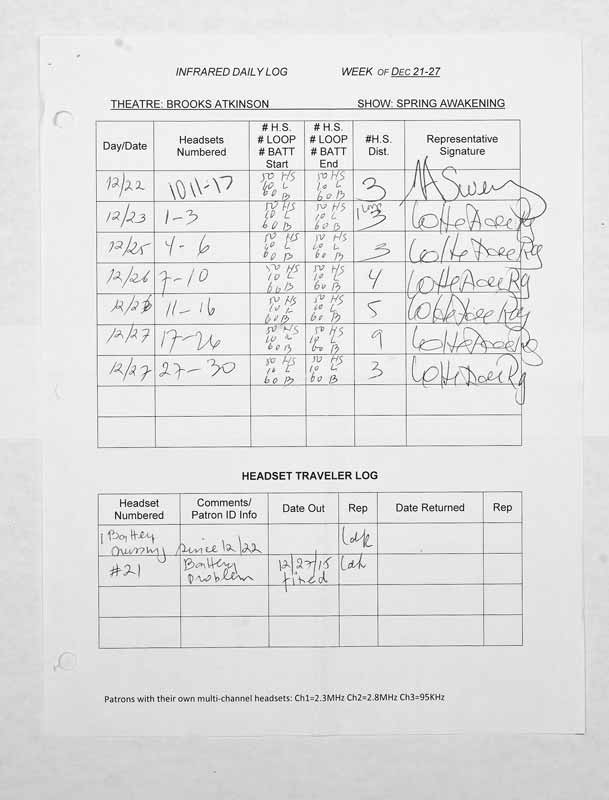 INFRARED DAILY LOG WEEK OF DEC 21-27
THEATRE: BROOKS ATKINSON SHOW: SPRING AWAKENING
Day/Date Headsets Numbered # H.S. # LOOP # BATT Start # H.S. # LOOP # BATT End #H.S. Dist. Representative Signature
12/22 1011-17 50 HS 60 L 60 B 50 HS 10 L 60 B 3
12/23 1-3 50 HS 10 L 60 B 50 HS 10 L 60 B 3
12/25 4-6 50 HS 10 L 60 B 50 HS 10 L 60 B 3
12/26 7-10 50 HS 10 L 60 B 50 HS 10 L 60 B 4
12/26 11-16 50 HS 10 L 60 B 50 HS 10 L 60 B 5
12/27 17-26 50 HS 10 L 60 B 50 HS 10 L 60 B 9
12/27 27-30 50 HS 10 L 60 B 50 HS 10 L 60 B 3
HEADSET TRAVELER LOG
Headset Numbered Comments/ Patron ID Info Date Out Rep Date Returned Rep
1 Battery missing since 12/22
#21 Battery problem 12/27/15 fixed
Patrons with their own multi-channel headsets: Ch1=2.3MHz Ch2=2.8MHz Ch3=95KHz